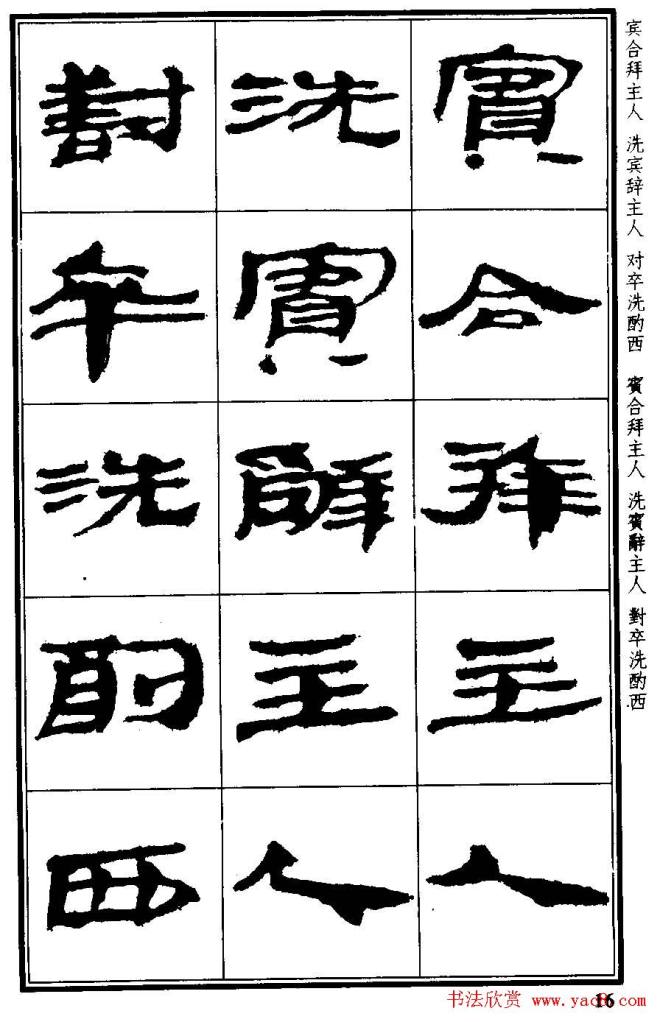 賓合拜主人
洗賓辭主人
對卒洗酌西
宾合拜主人 洗宾辞主人 对卒洗酌西 賓合拜主人 洗賓辭主人 對卒洗酌西
16
书法欣赏 www.yac8.com